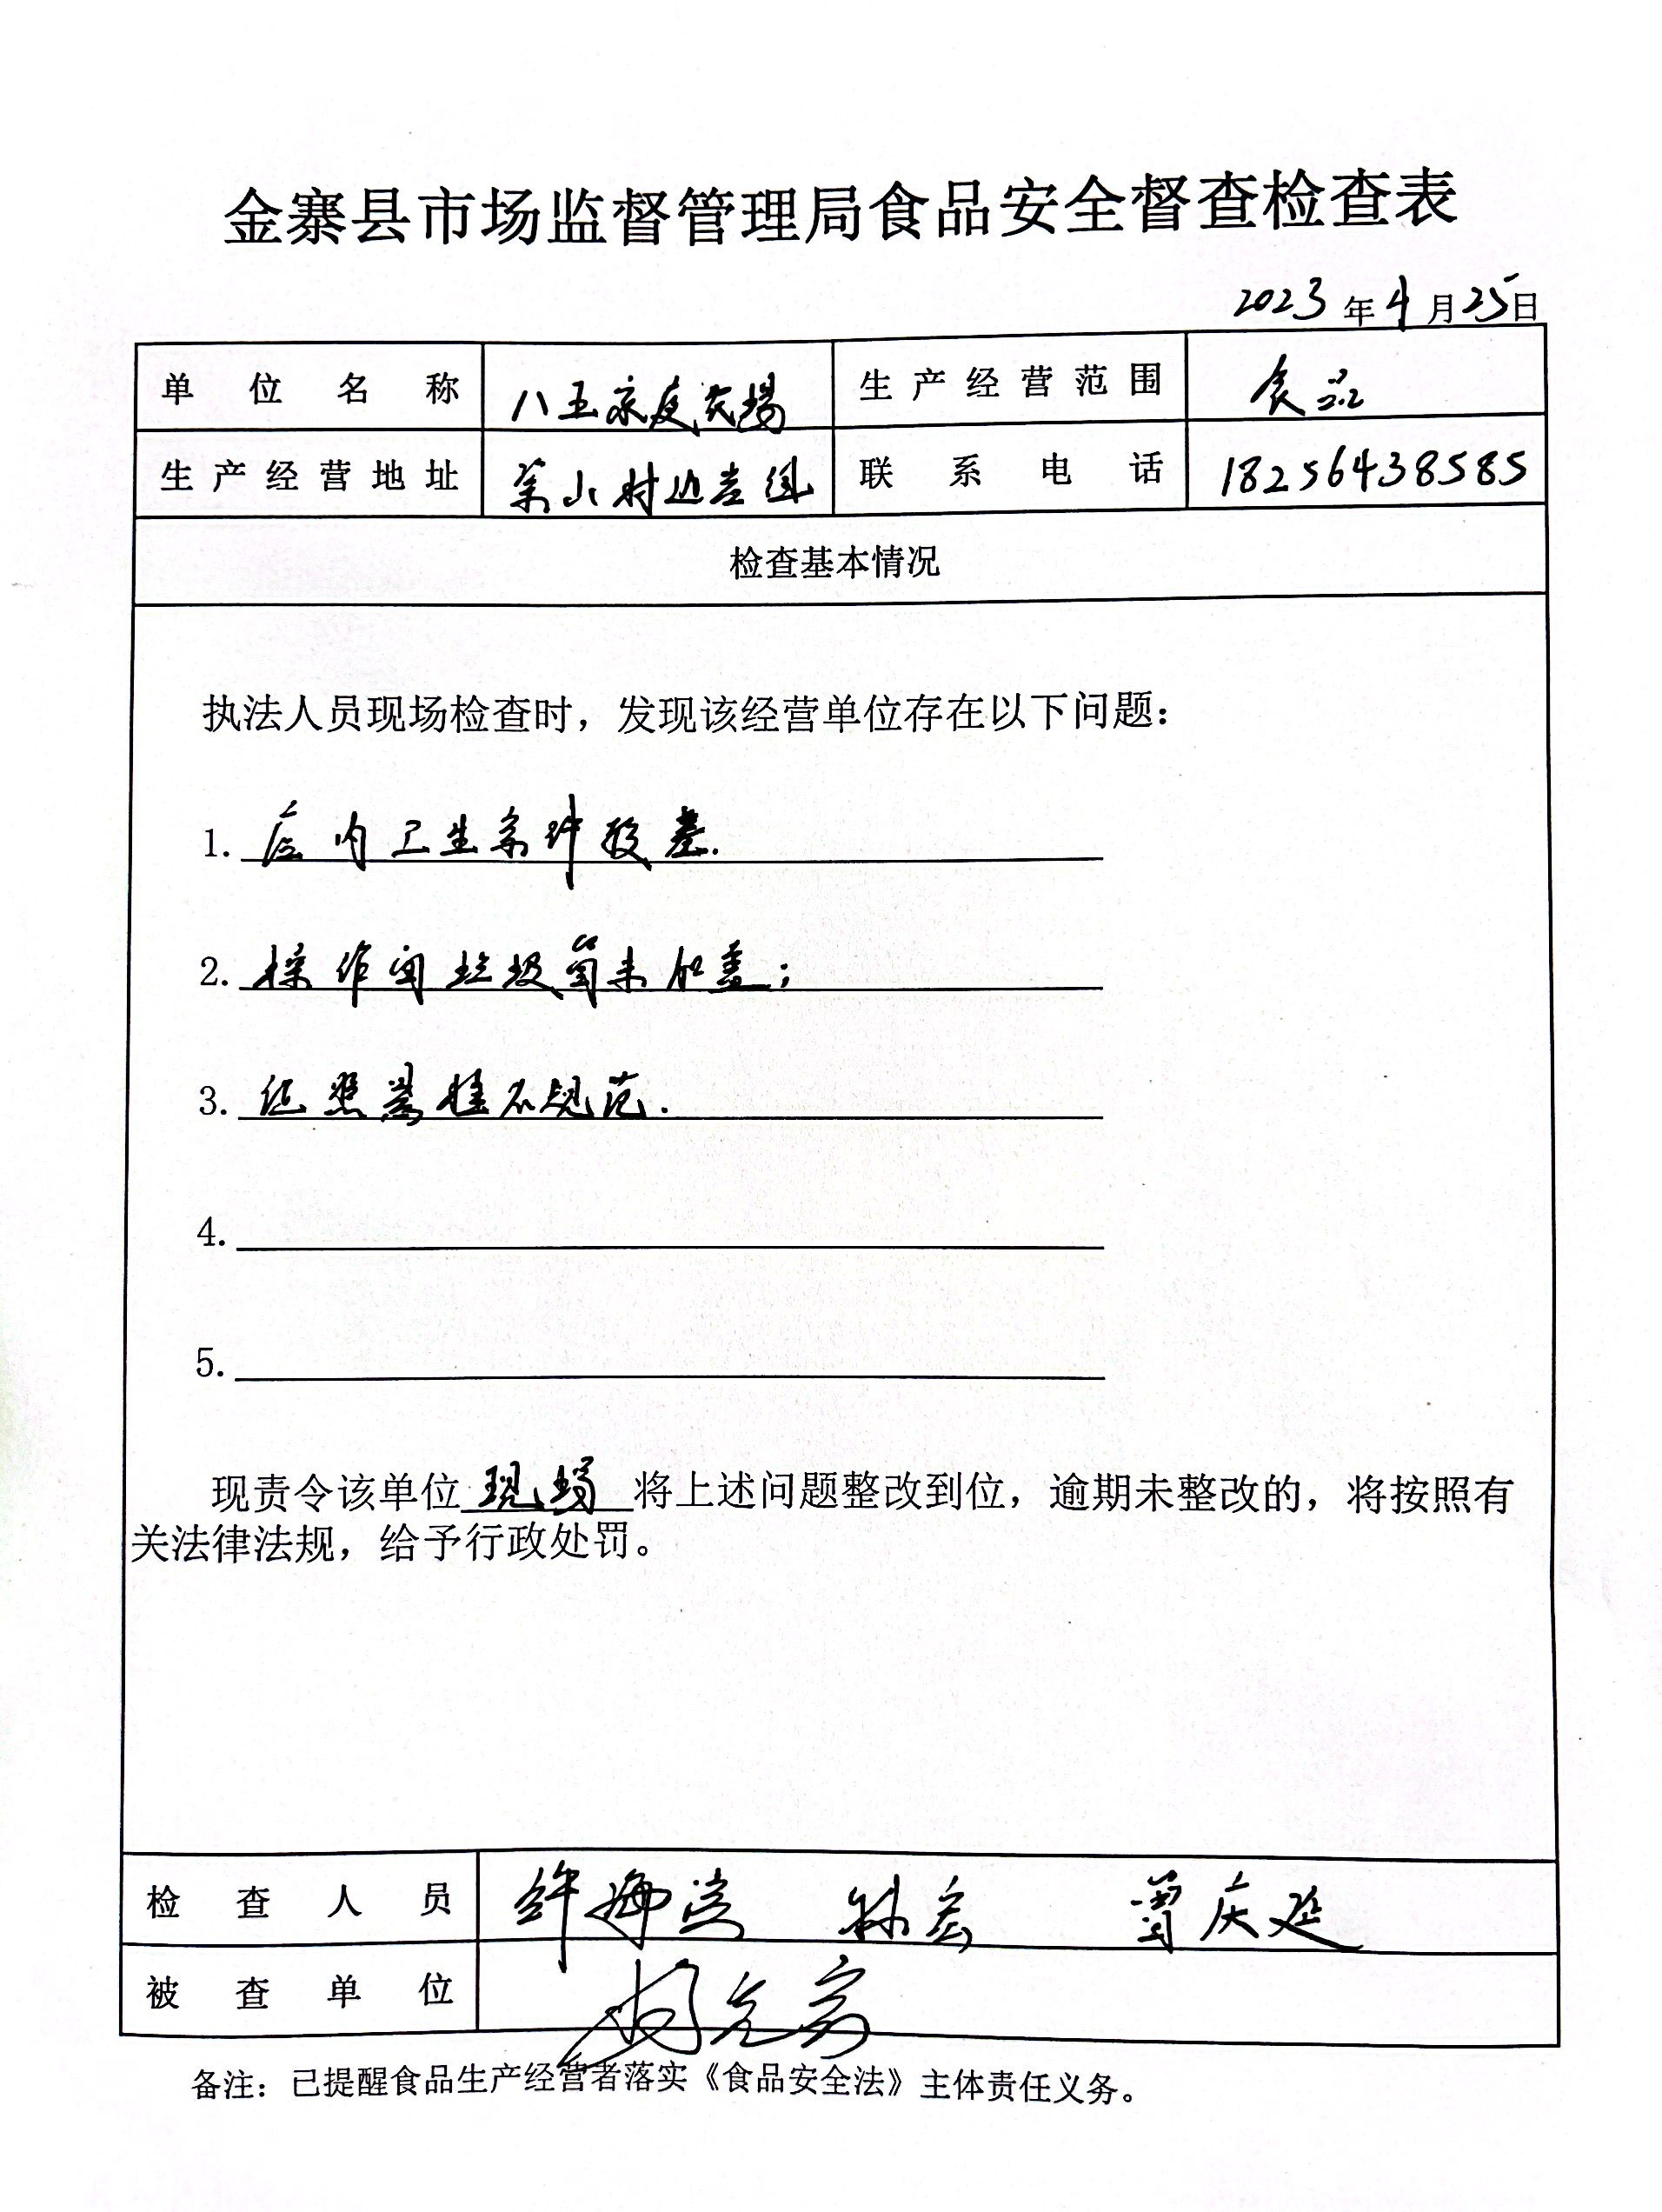 金寨县市场监督管理局食品安全督查检查表
2023年4月25日
单位名称 八五家庭农场 生产经营范围 食品
生产经营地址 山村 组 联系电话 18256438585
检查基本情况
执法人员现场检查时，发现该经营单位存在以下问题：
1. 店内卫生条件较差.
2. 操作间垃圾筒未加盖；
3. 证照悬挂不规范.
4.
5.
现责令该单位 现场 将上述问题整改到位，逾期未整改的，将按照有
关法律法规，给予行政处罚。
检查人员 林宏 曾庆延
被查单位
备注：已提醒食品生产经营者落实《食品安全法》主体责任义务。